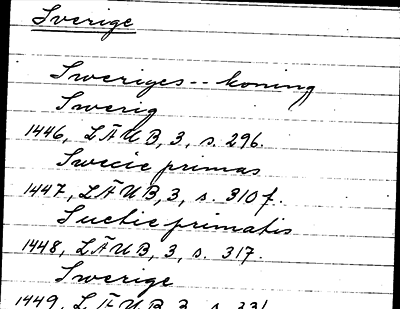 Sverige
Sweriges -- koning
Swerig
1446, LÄUB, 3, s. 296.
Swecie primas
1447, LÄUB, 3, s. 310 f.
Suetie primatis
1448, LÄUB, 3, s. 317.
Swerige
1449, LÄUB, 3, s. 331